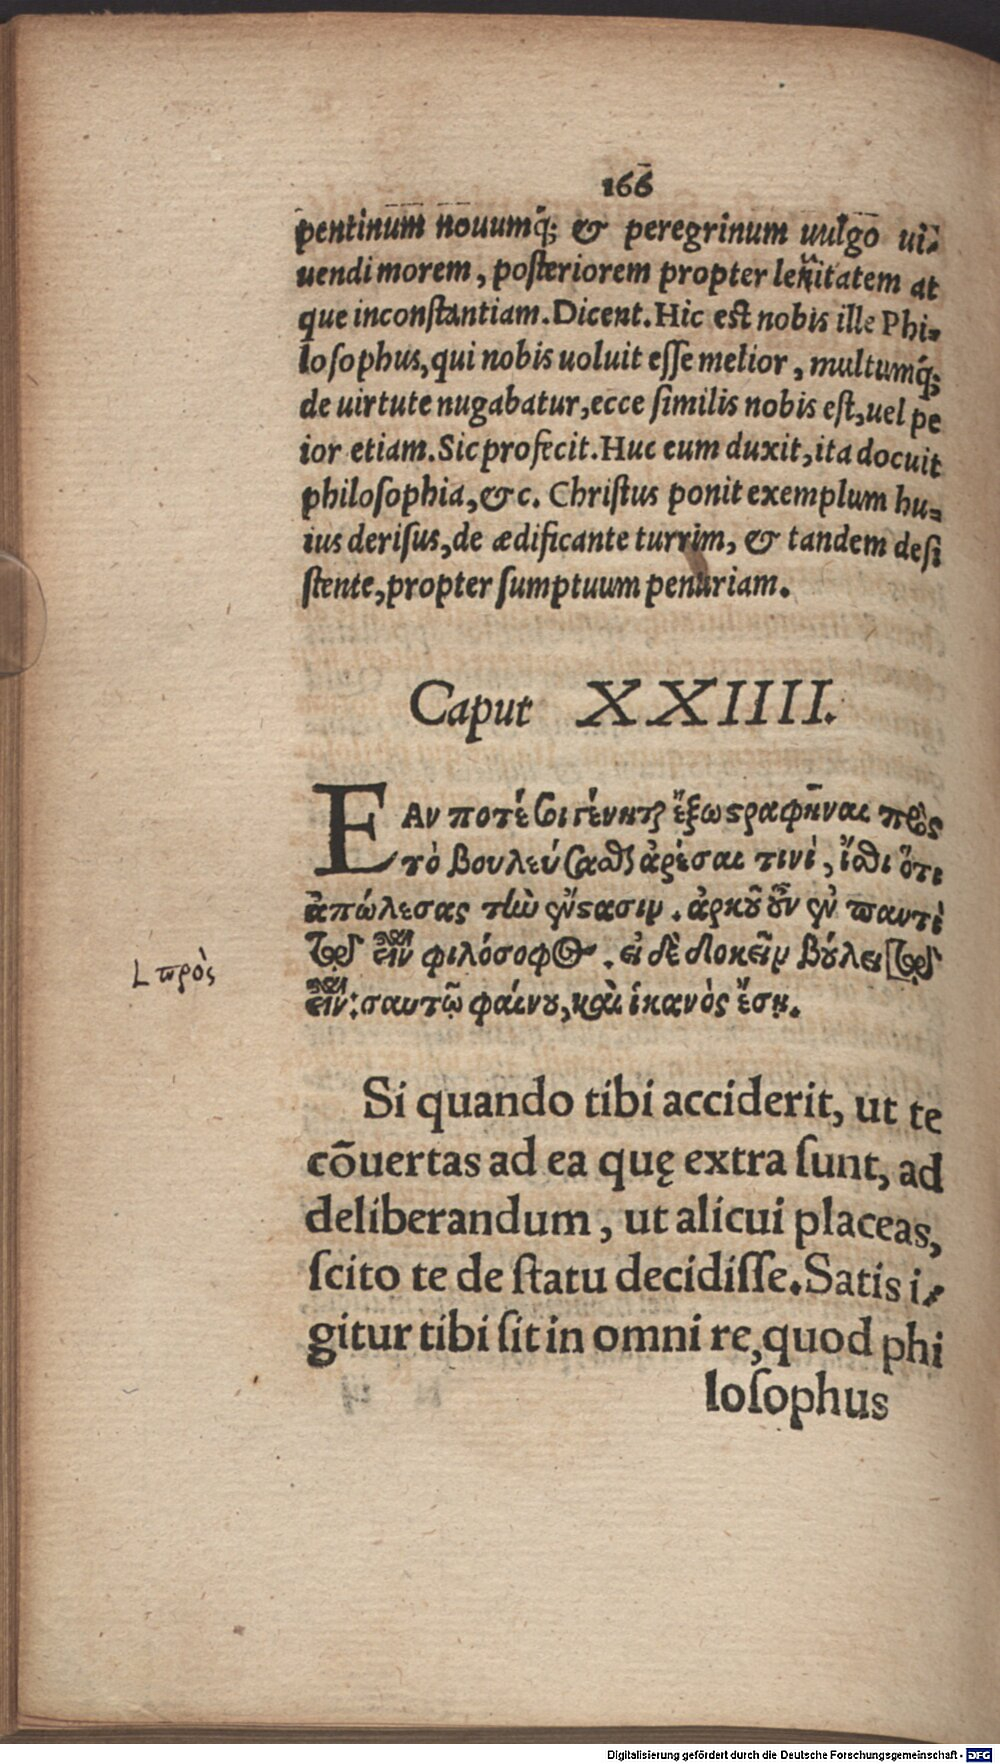 166
pentinum nouumq́; & peregrinum uulgo ui-
uendi morem, posteriorem propter leuitatem at
que inconstantiam. Dicent. Hic est nobis ille Phi-
losophus, qui nobis uoluit esse melior, multumq́;
de uirtute nugabatur, ecce similis nobis est, uel pe
ior etiam. Sic profecit. Huc eum duxit, ita docuit
philosophia, &c. Christus ponit exemplum hu-
ius derisus, de ædificante turrim, & tandem desi
stente, propter sumptuum penuriam.
Caput XXIIII.
ΕΑν ποτέ σοι γένηται ἔξω στραφῆναι πρὸς
τὸ βουλεύσασθαι ἀρέσαι τινὶ, ἴσθι ὅτι
ἀπώλεσας τὴν ἔνστασιν. ἀρκοῦ οὖν ἐν παντὶ
τῷ εἶναι φιλόσοφος. εἰ δὲ δοκεῖν βούλει τῷ
Lπρὸς
εἶναι: σαυτῷ φαίνου, καὶ ἱκανὸς ἔσῃ.
Si quando tibi acciderit, ut te
cōuertas ad ea quę extra sunt, ad
deliberandum, ut alicui placeas,
scito te de statu decidisse. Satis i-
gitur tibi sit in omni re, quod phi
losophus
Digitalisierung gefördert durch die Deutsche Forschungsgemeinschaft - DFG